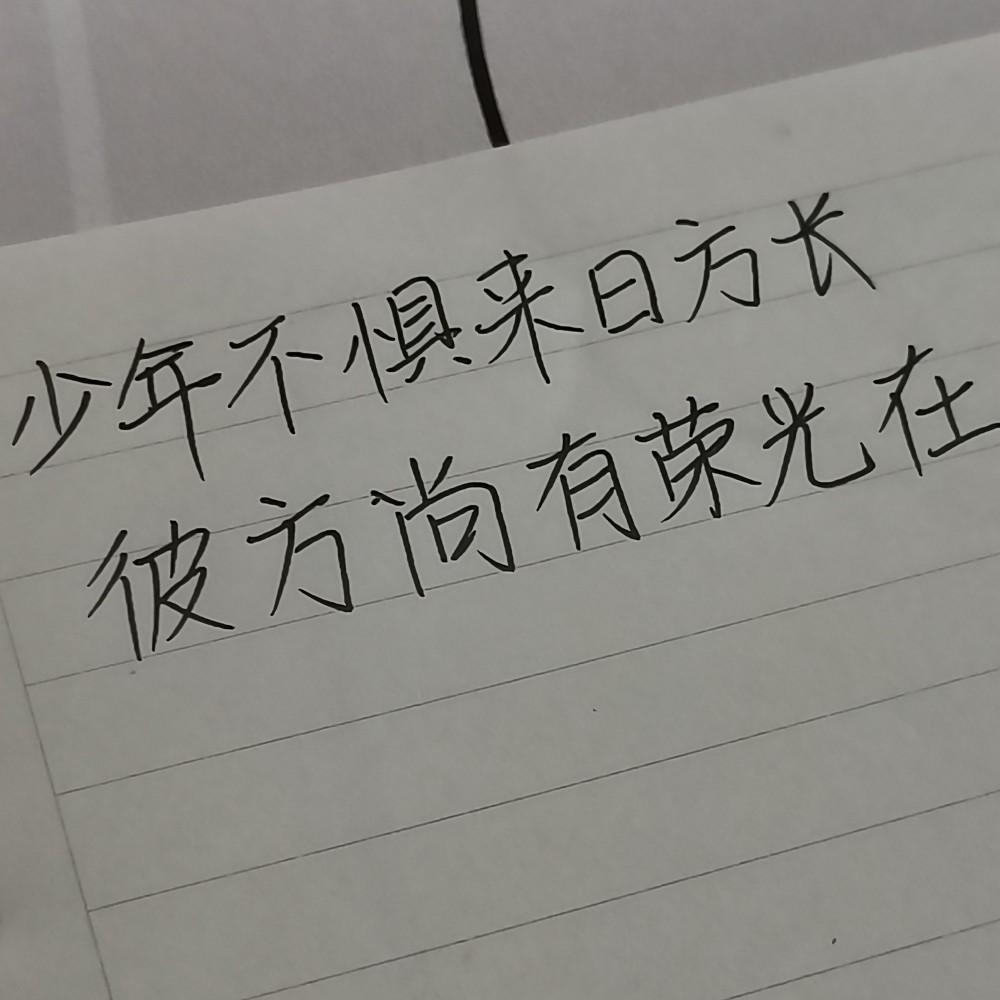 少年不惧来日方长
彼方尚有荣光在